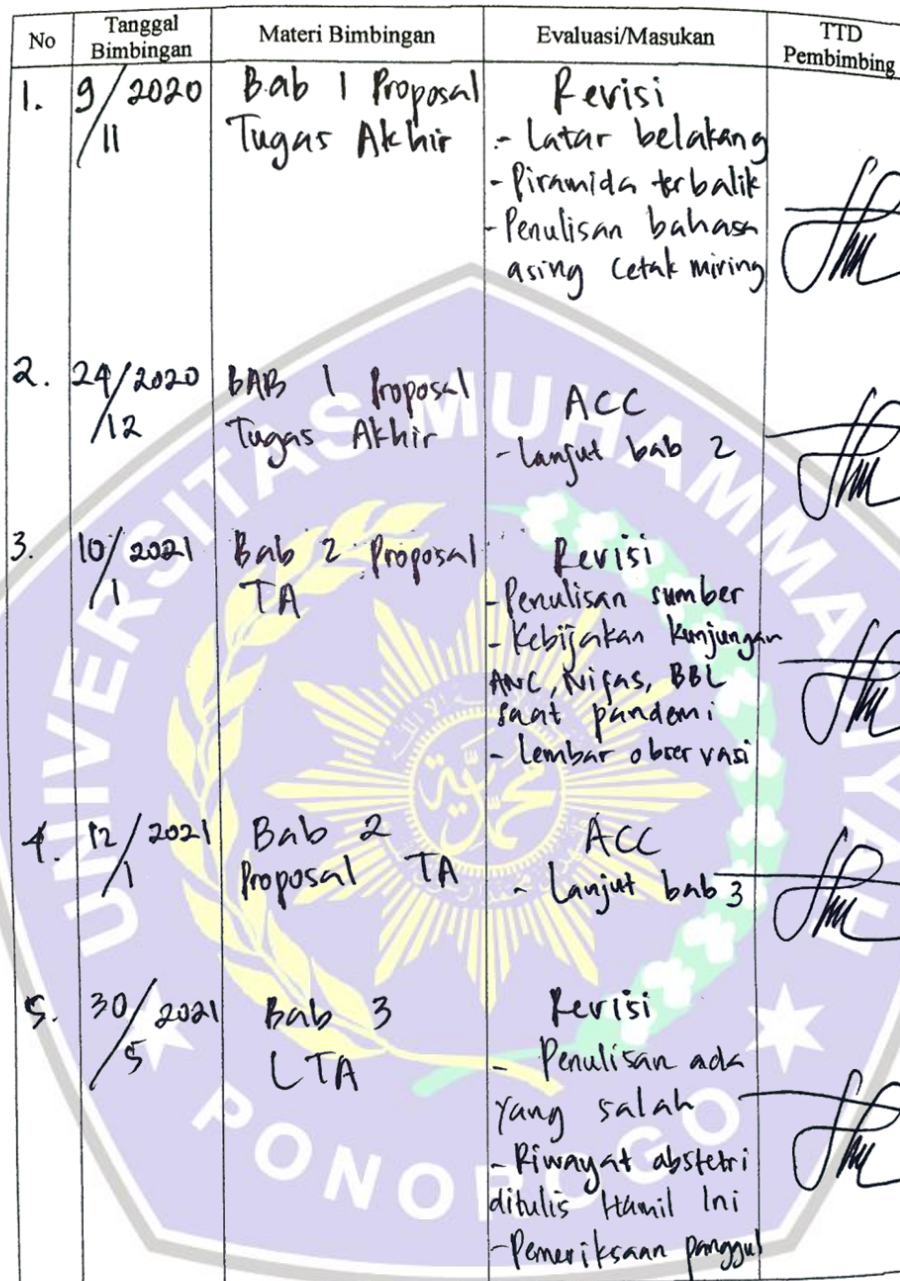 No Tanggal Bimbingan Materi Bimbingan Evaluasi/Masukan TTD Pembimbing
1. 9/11 2020 Bab 1 Proposal Revisi
Tugas Akhir - Latar belakang
- Piramida terbalik
- Penulisan bahasa
asing cetak miring
2. 24/12 2020 BAB 1 Proposal ACC
Tugas Akhir - Lanjut bab 2
3. 10/1 2021 Bab 2 Proposal Revisi
TA - Penulisan sumber
- Kebijakan Kunjungan
ANC, Nifas, BBL
saat pandemi
- Lembar observasi
4. 12/1 2021 Bab 2 ACC
Proposal TA - Lanjut bab 3
5. 30/5 2021 Bab 3 Revisi
LTA - Penulisan ada
yang salah
- Riwayat abstetri
ditulis Hamil Ini
- Pemeriksaan panggul
UNIVERSITAS MUHAMMADIYAH
PONOROGO
محمد